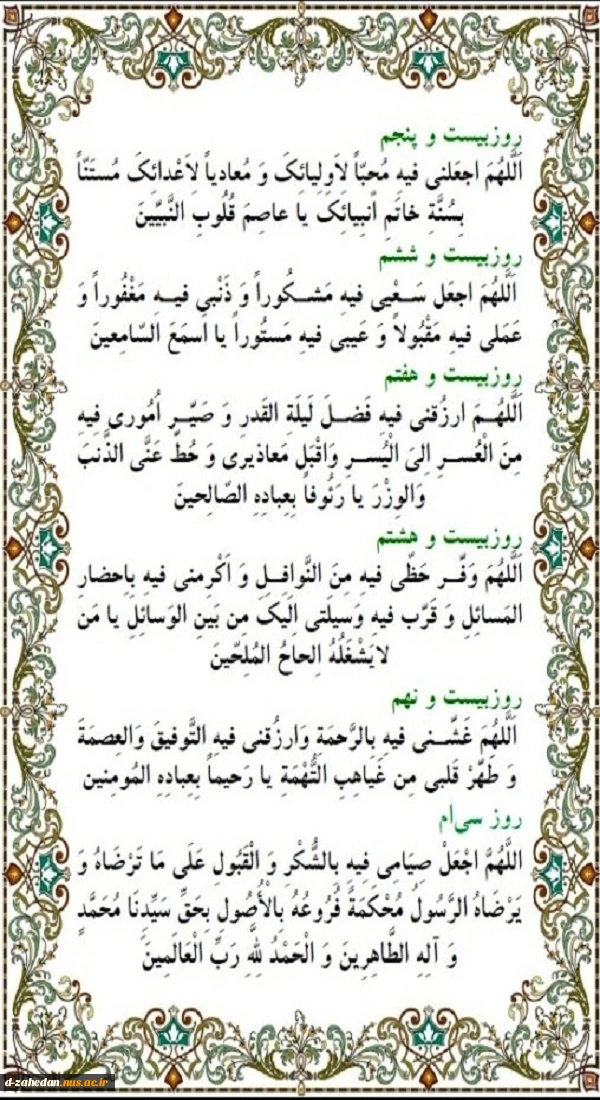 روزبیست و پنجم
اَللهُمَ اجعَلنی فیهِ مُحبّاً لاَولِیائِکَ وَ مُعادیاً لاَعْدائِکَ مُستَنّاً
بِسُنَّةِ خاتَمِ اَنبِیائِکَ یا عاصِمَ قُلُوبِ النَّبیِّینَ
روزبیست و ششم
اَللهُمَ اجعَل سَعْیی فیهِ مَشکُوراً وَ ذَنْبی فیهِ مَغْفُوراً وَ
عَمَلی فیهِ مَقْبُولاً وَ عَیبی فیهِ مَستُوراً یا اَسمَعَ السّامِعینَ
روزبیست و هفتم
اَللهُمَ ارزُقنی فیهِ فَضلَ لَیلَةِ القَدرِ وَ صَیِّر اُمُوری فیهِ
مِنَ الْعُسرِ اِلیَ الْیُسرِ وَاقْبَل مَعاذیری وَ حُطَّ عَنَّی الذَّنبَ
وَالوِزْرَ یا رَئُوفاً بِعِبادِهِ الصّالِحینَ
روزبیست و هشتم
اَللهُمَ وَفِّر حَظّی فیهِ مِنَ النَّوافِلِ وَ اَکْرِمنی فیهِ بِاِحضارِ
المَسائِلِ وَ قَرِّب فیهِ وَسیلَتی اِلَیکَ مِن بَینِ الوَسائِلِ یا مَن
لایَشْغَلُهُ اِلحاحُ المُلِحّینَ
روزبیست و نهم
اَللهُمَ غَشِّنی فیهِ بِالرَّحمَةِ وَارزُقنی فیهِ التَّوفیقَ وَالعِصمَةَ
وَ طَهِّرْ قَلبی مِن غَیاهِبِ التُّهْمَةِ یا رَحیماً بِعِبادِهِ المُومِنین
روز سی‌ام
اللَّهُمَّ اجْعَلْ صِیَامِی فِیهِ بِالشُّکْرِ وَ الْقَبُولِ عَلَی مَا تَرْضَاهُ وَ
یَرْضَاهُ الرَّسُولُ مُحْکَمَةً فُرُوعُهُ بِالْأُصُولِ بِحَقِّ سَیِّدِنَا مُحَمَّدٍ
وَ آلِهِ الطَّاهِرِینَ وَ الْحَمْدُ لِلَّهِ رَبِّ الْعَالَمِینَ
d-zahedan.nus.ac.ir